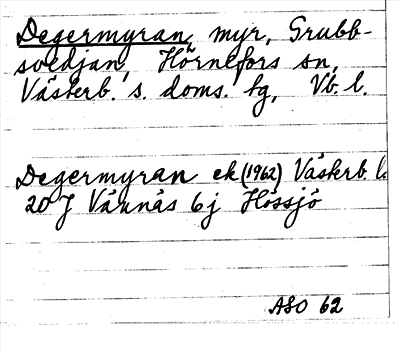 Degermyran, myr, Grubb-
svedjan, Hörnefors sn,
Västerb. s. doms. tg, Vb. l.
Degermyran ek (1962) Västerb. l.
20 J Vännäs 6j Hössjö
ASO 62